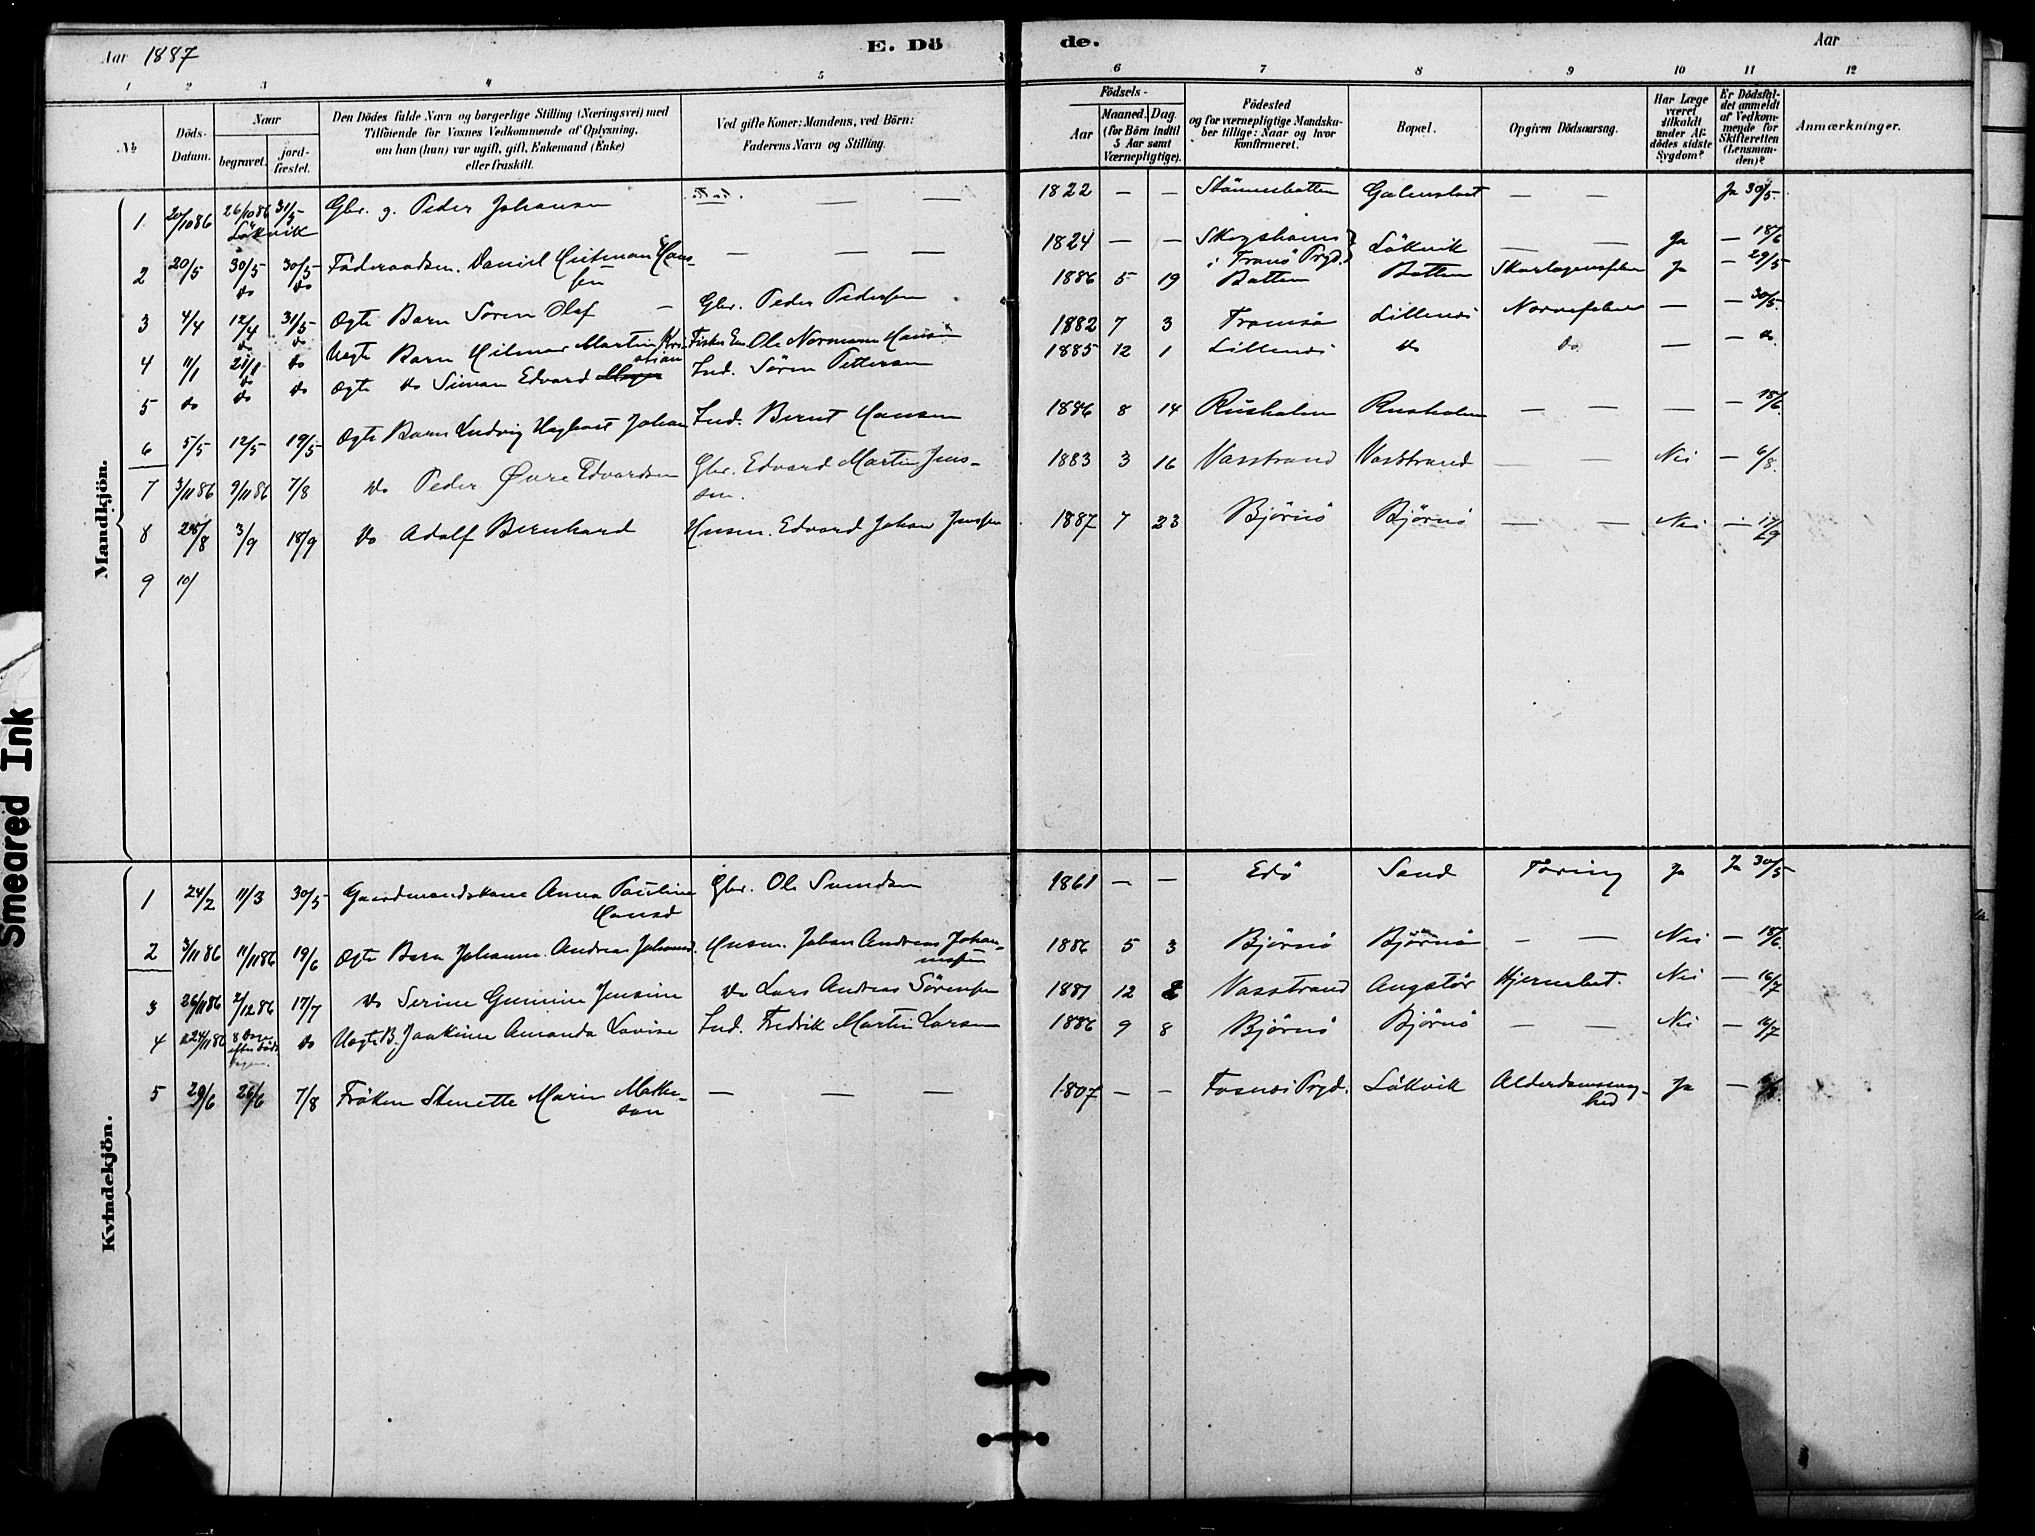 Aar 1887
E. Dö
de.
Aar
1 2 3 4 5 6 7 8 9 10 11 12
№
Döds-Datum.
Naar
begravet.
jord-fæstet.
Den Dödes fulde Navn og borgerlige Stilling (Næringsvei) med
Tilföiende for Voxnes Vedkommende af Oplysning,
om han (hun) var ugift, gift, Enkemand (Enke)
eller fraskilt.
Ved gifte Koner: Mandens, ved Börn:
Faderens Navn og Stilling.
Födsels-
Aar
Maaned. Dag.
(for Börn indtil
5 Aar samt
Værnepligtige).
Födested
og for værnepligtige Mandska-
ber tillige: Naar og hvor
konfirmeret.
Bopæl.
Opgiven Dödsaarsag.
Har Læge
været
tilkaldt
under Af-
dödes sidste
Sygdom?
Er Dödsfal-
det anmeldt
af Vedkom-
mende for
Skifteretten
(Lensman-
den)?
Anmærkninger.
Mandkjön.
1 20/10 86 26/10 86 31/5 Gbr. g. Peder Johansen — — 1822 — — — — Ja 30/5
Lökvik
2 20/5 30/5 30/5 Föderaadsm. Daniel Heitman Hans- — — — 1824 — — Skogshavn Lökvik — — Ja — 18/6
do do sen i Tranö Prgd.
3 4/4 12/4 31/5 Ægte Barn Sören Olaf — Gbr. Peder Pedersen 1886 5 19 Botten Botten Skarlagensfeber Ja — 29/5
do do
4 11/1 21/1 do Uægte Barn Hilmar Martin Kri- Ole Normann Hansen 1882 7 3 Tromsö Lillenes Nervefeber — — 30/5
do stian
5 do do do Ægte do Simon Edvard Ind. Sören Pettersen 1885 12 1 Lillenes do do — — do.
6 5/5 12/5 19/5 Ægte Barn Ludvig Johan Ind. Bernt Hansen 1886 8 14 Rusholm Rusholm — — — — 18/6
7 3/11 86 9/11 86 7/8 do Peder Øvre Edvardsen Gbr. Edvard Martin Jens- 1883 3 16 Vasstrand Vasstrand — — Nei — 6/8.
sen.
8 28/8 3/9 18/9 do Adolf Bernhard Husm. Edvard Johan Jenssen 1887 7 23 Björnö Björnö — — Nei — 17/9
9 10/
Kvindekjön.
1 24/2 11/3 30/5 Gaardmandskone Anna Pauline Gbr. Ole Svendsen 1861 — — Edö Sand Tæring Ja Ja 30/5
Hansd
2 3/11 86 11/11 86 19/6 Ægte Barn Johanne Andrea Johansd. Husm. Johan Andreas Johan- 1886 5 3 Björnö Björnö — — Nei — 18/6.
nessen
3 26/11 86 2/12 86 17/7 do Serine Gunnine Jensine do Lars Andreas Sörensen 1881 12 2 Vasstrand Angstör Hjernebet. Nei — 16/7
4 24/11 86 8 Dage do Uægte B. Joakime Amanda Lovise Ind. Fredrik Martin Larsen 1886 9 8 Björnö Björnö — — Nei — 16/7
efter Döds-
dagen.
5 29/6 26/6 7/8 Fröken Stenette Marie Mathe- — — — 1807 — — Fosnes Prgd. Lökvik Alderdomssvag- Ja —
son hed
Smeared Ink